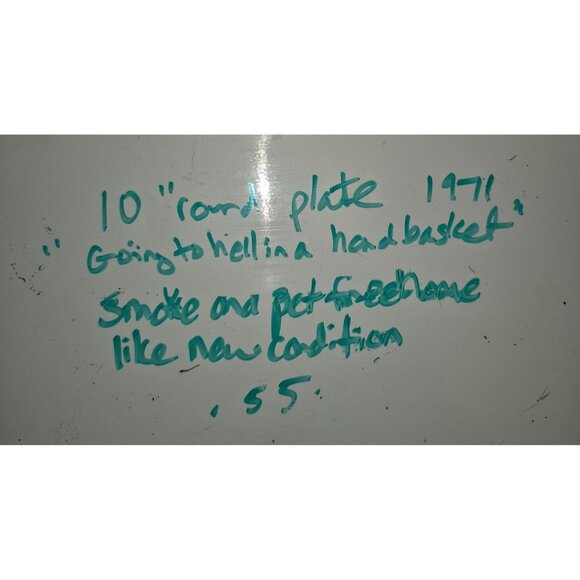 10 "round plate 1971
"Going to hell in a hand basket"
Smoke and pet free home
like new condition
.55.